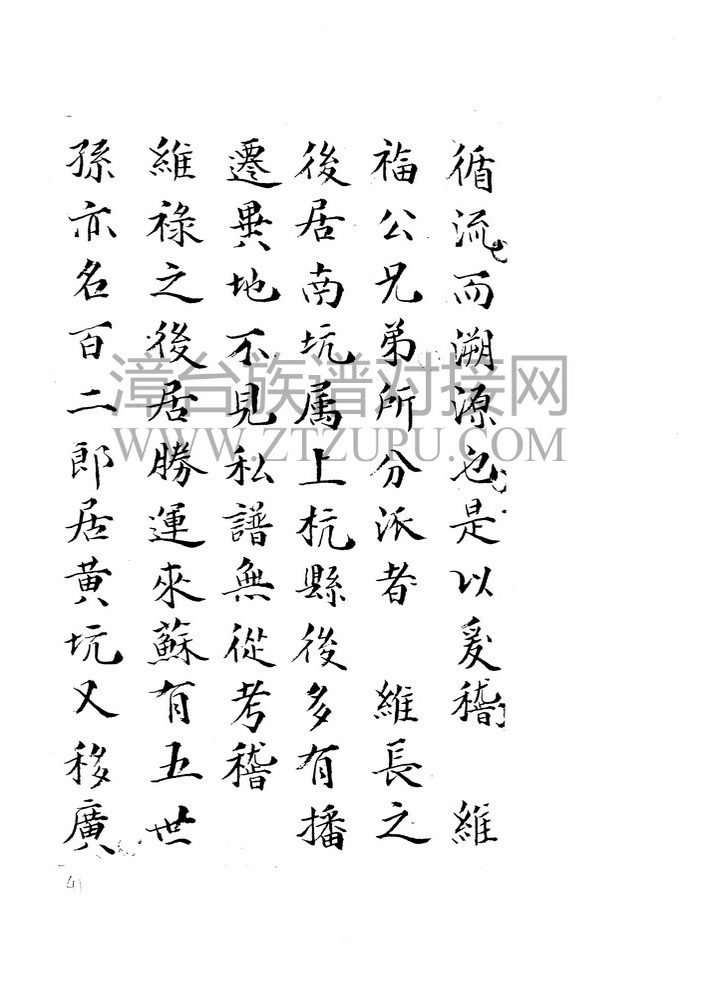 循流而溯源也是以爰稽　維
福公兄弟所分派者　維長之
後居南坑属上杭縣後多有播
遷異地不見私譜無從考稽
維祿之後居勝運來蘇有五世
孫亦名百二郎居黄坑又移廣
漳台族谱对接网
WWW.ZTZUPU.COM
41